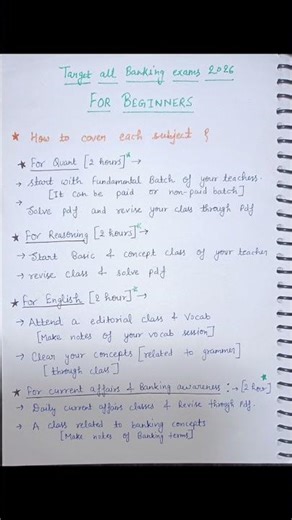 Target all Banking exams 2026
FOR BEGINNERS
★ How to cover each subject {
★ For Quant [2 hours]* →
→ start with Fundamental Batch of your teachers.
[It can be paid or non-paid batch]
→ Solve pdf and revise your class through Pdf
★ For Reasoning [2 hours]* →
→ Start Basic & concept class of your teacher
→ revise class & solve pdf
★ For English [2 hour]* →
→ Attend a editorial class & Vocab
[Make notes of your vocab session]
→ Clear your concepts [related to grammer]
[through class]
★ For current affairs & Banking awareness :→ [2 hour]*
→ Daily current affairs classes & Revise through Pdf.
→ A class related to banking concepts
[Make notes of Banking terms]